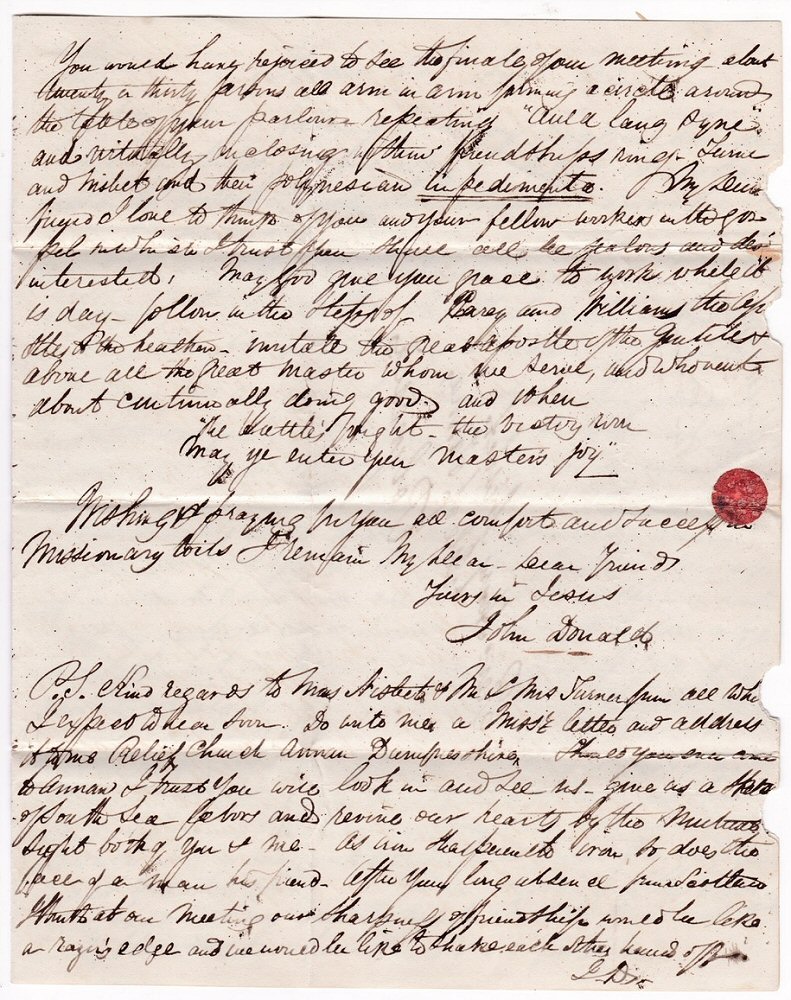 You would have rejoiced to see the finale of our meeting about
twenty or thirty persons all arm in arm forming a circle around
the table of your parlour repeating "Auld lang Syne"
and virtually inclosing in their friendships ring - Turner
and Nisbet and their Polynesian impedimenta. My Dear
friend I love to think of you and your fellow workers in the gos-
pel in which I trust you shall all be zealous and dis-
interested. May God give you grace to work while it
is day - follow in the steps of Carey and Williams the Apo-
stles of the heathen - imitate the great apostle of the Gentiles &
above all the great Master whom we serve, and who went
about continually doing good, and when
"The battle's fought - the victory won
May ye enter your master's joy"
Wishing & praying for you all comfort and success in
Missionary toils I remain My Dear - Dear friend
Yours in Jesus
John Donald
P.S. Kind regards to Mrs Nisbet & Mr & Mrs Turner from all who
I expect to hear soon. Do write me a Missy letter and address
it to me Relief Church Annan Dumfriesshire. Should you ever come
to Annan I trust you will look in and see us - give us a
of South Sea labors and revive our hearts by the mutual
sight both of you & me - As iron sharpeneth iron so does the
face of a man his friend - After your long absence from Scotland
I doubt at our meeting our sharpness of friendship would be like
a razor's edge and we would be like to shake each others hand off -
J. D.